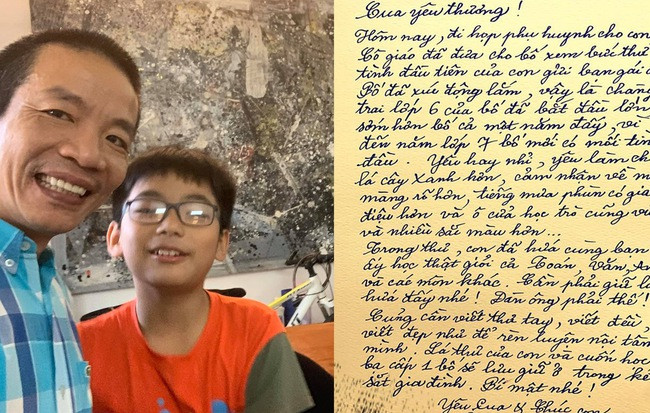 Cua yêu thương!
Hôm nay, đi họp phụ huynh cho con
Cô giáo đã đưa cho bố xem bức thư
tình đầu tiên của con gửi bạn gái
Bố đã xúc động lắm, vậy là chàng
trai lớp 6 của bố đã bắt đầu lớn
sớm hơn bố cả một năm đấy, vì
đến năm lớp 7 bố mới có mối tình
đầu. Yêu hay nhỉ, yêu làm ch
lá cây xanh hơn, cảm nhận về m
màng rõ hơn, tiếng mưa phùn có gia
điệu hơn và ô cửa học trò cũng vu
và nhiều sắc màu hơn...
Trong thư, con đã hứa cùng bạn
ấy học thật giỏi cả Toán, Văn, An
và các môn khác. Cần phải giữ lờ
hứa đấy nhé! Đàn ông phải thế!
Cũng cần viết thư tay, viết đều,
viết đẹp như để rèn luyện nội tâm
mình. Lá thư của con và cuốn học
bạ cấp 1 bố sẽ lưu giữ ở trong ké
sắt gia đình. Bí mật nhé!
Yêu Cua & Chúc con